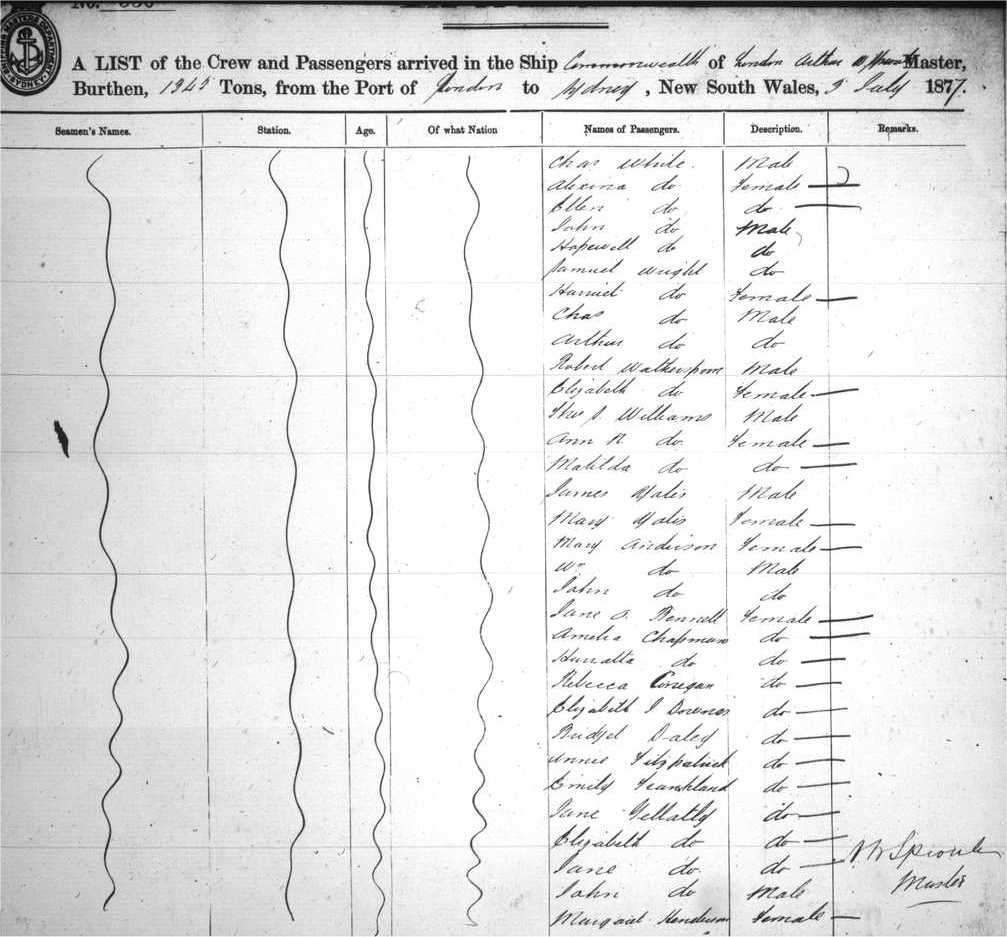 No.
A LIST of the Crew and Passengers arrived in the Ship Commonwealth of London Arthur Master,
Burthen, 1345 Tons, from the Port of London to Sydney, New South Wales, 5 July 1877.
Seamen's Names. Station. Age. Of what Nation Names of Passengers. Description. Remarks.
Chas White. Male
Alexina do Female —
Ellen do do —
John do Male
Hopewell do do
Samuel Wright do
Harriet do Female —
Chas do Male
Arthur do do
Robert Watherspoon Male
Elizabeth do Female —
Thos J. Williams Male
Ann R do Female —
Matilda do do —
James Male
Mary Female —
Mary Anderson Female —
Wm do Male
John do do
Jane Bennett Female —
Amelia Chapman do —
Henrietta do do —
Rebecca Corregan do —
Elizabeth J Downes do —
Bridget Daley do —
Annie Fitzpatrick do —
Emily Frankland do —
Jane Gellatly do —
Elizabeth do do —
Jane do do —
John do Male
Margaret Henderson Female —
Sproule
Master